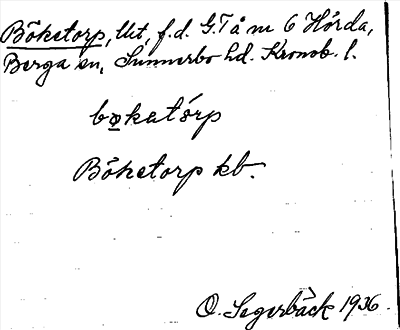 Böketorp, Ut, f.d. G.T å nr 6 Hörda,
Berga sn, Sunnerbo hd. Kronob. l.
bøkatórp
Böketorp kb.
O. Segerbäck 1936.